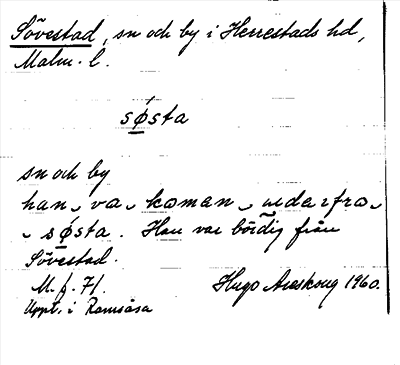 Sövestad, sn och by i Herrestads hd,
Malm. l.
sǿsta
sn och by
han va koman nedarfro
sǿsta. Han var bördig från
Sövestad.
M. f. 71.
Uppt. i Ramsåsa
Hugo Areskoug 1960.